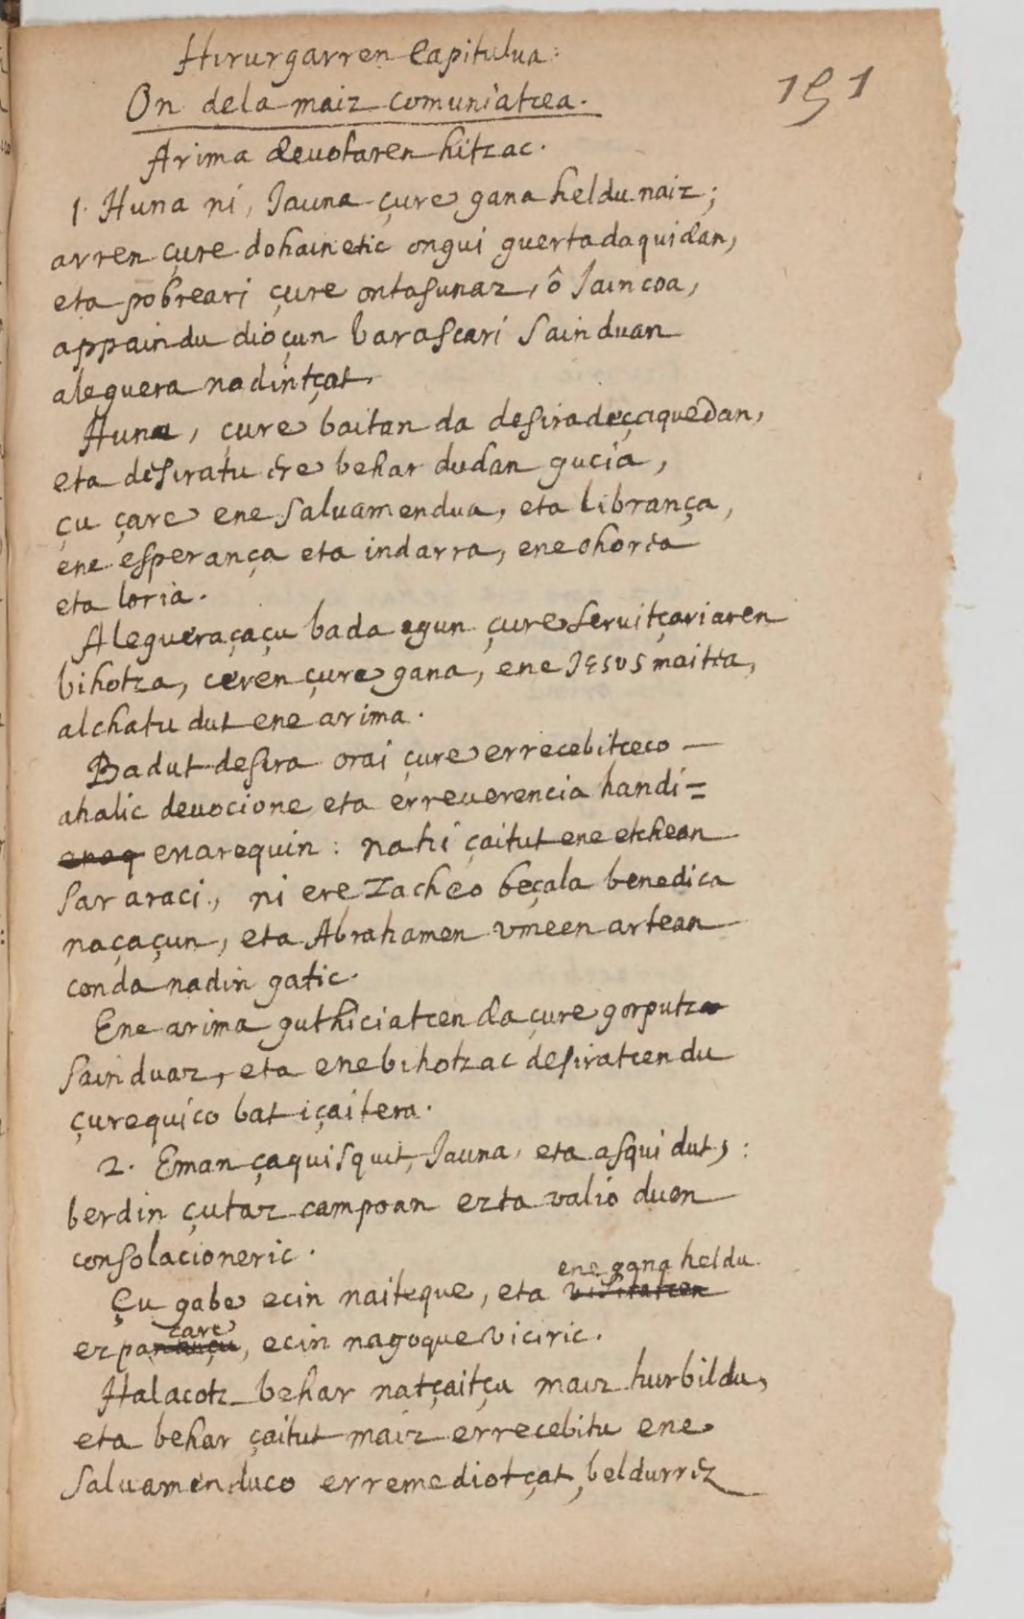 Hirurgarren Capitulua:
191
On dela maiz comuniatcea.
Arima deuotaren hitzac.
1. Huna ni, Jauna çure gana heldu naiz;
arren çure dohainetic ongui guerta daquidan,
eta pobreari çure ontasunaz, ô Jaincoa,
appaindu dioçun barascari sainduan
aleguera nadintçat.
Huna, çure baitan da desira deçaquedan,
eta desiratu ere behar dudan gucia,
çu çare ene saluamendua, eta librança,
ene esperança eta indarra, ene ohorea
eta loria.
Alegueraçaçu bada egun çure seruitçariaren
bihotza, ceren çure gana, ene Jesus maitea,
alchatu dut ene arima.
Badut desira orai çure errecebitceco
ahalic deuocione eta erreuerencia handi=
enaq enarequin: nahi çaitut ene etchean
sar araci, ni ere Zacheo beçala benedica
naçaçun, eta Abrahamen vmeen artean
conda nadin gatic.
Ene arima guthiciatcen da çure gorputz
sainduaz, eta ene bihotzac desiratcen du
çurequico bat içaitera.
2. Eman çaquisquit, Jauna, eta asqui dut, :
berdin çutaz campoan ezta valio duen
consolacioneric.
ene gana heldu
Çu gabe ecin naiteque, eta visitatcen
çare
ezpanançu, ecin nagoque viciric.
Halacotz behar natçaitçu maiz hurbildu,
eta behar çaitut maiz errecebitu ene
saluamenduco erremediotçat, beldurrez